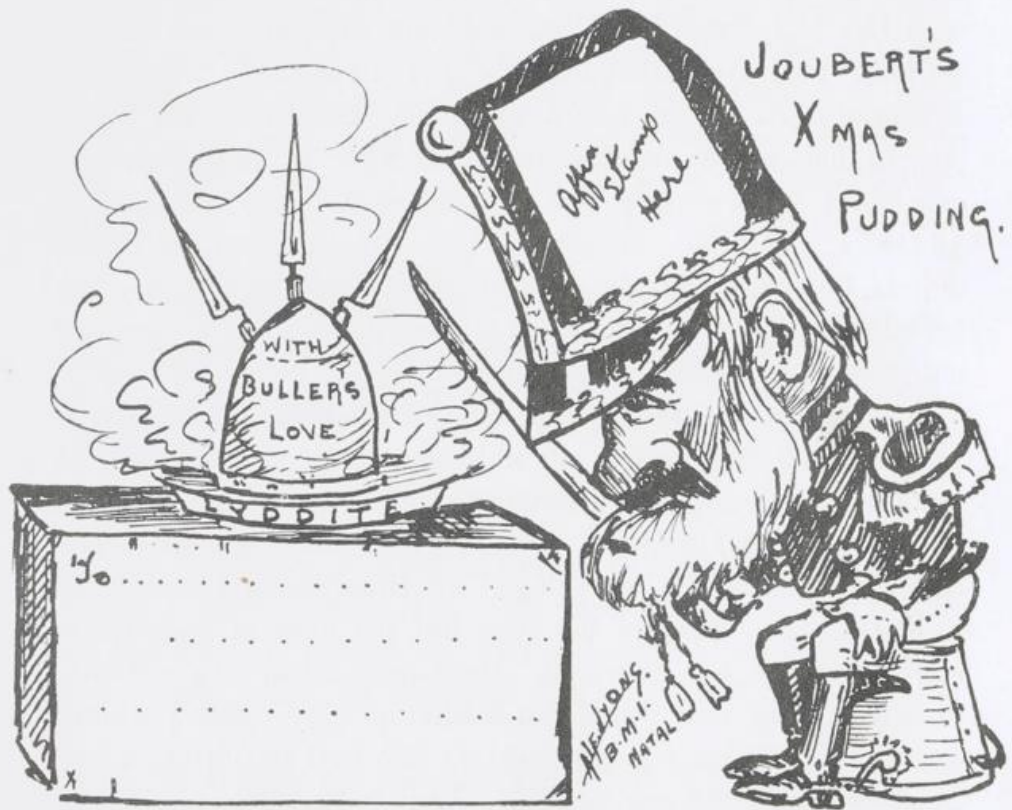 JOUBERT'S
XMAS
PUDDING.
Affix
Stamp
Here
WITH
BULLERS
LOVE
LYDDITE
To
B.M.I.
NATAL